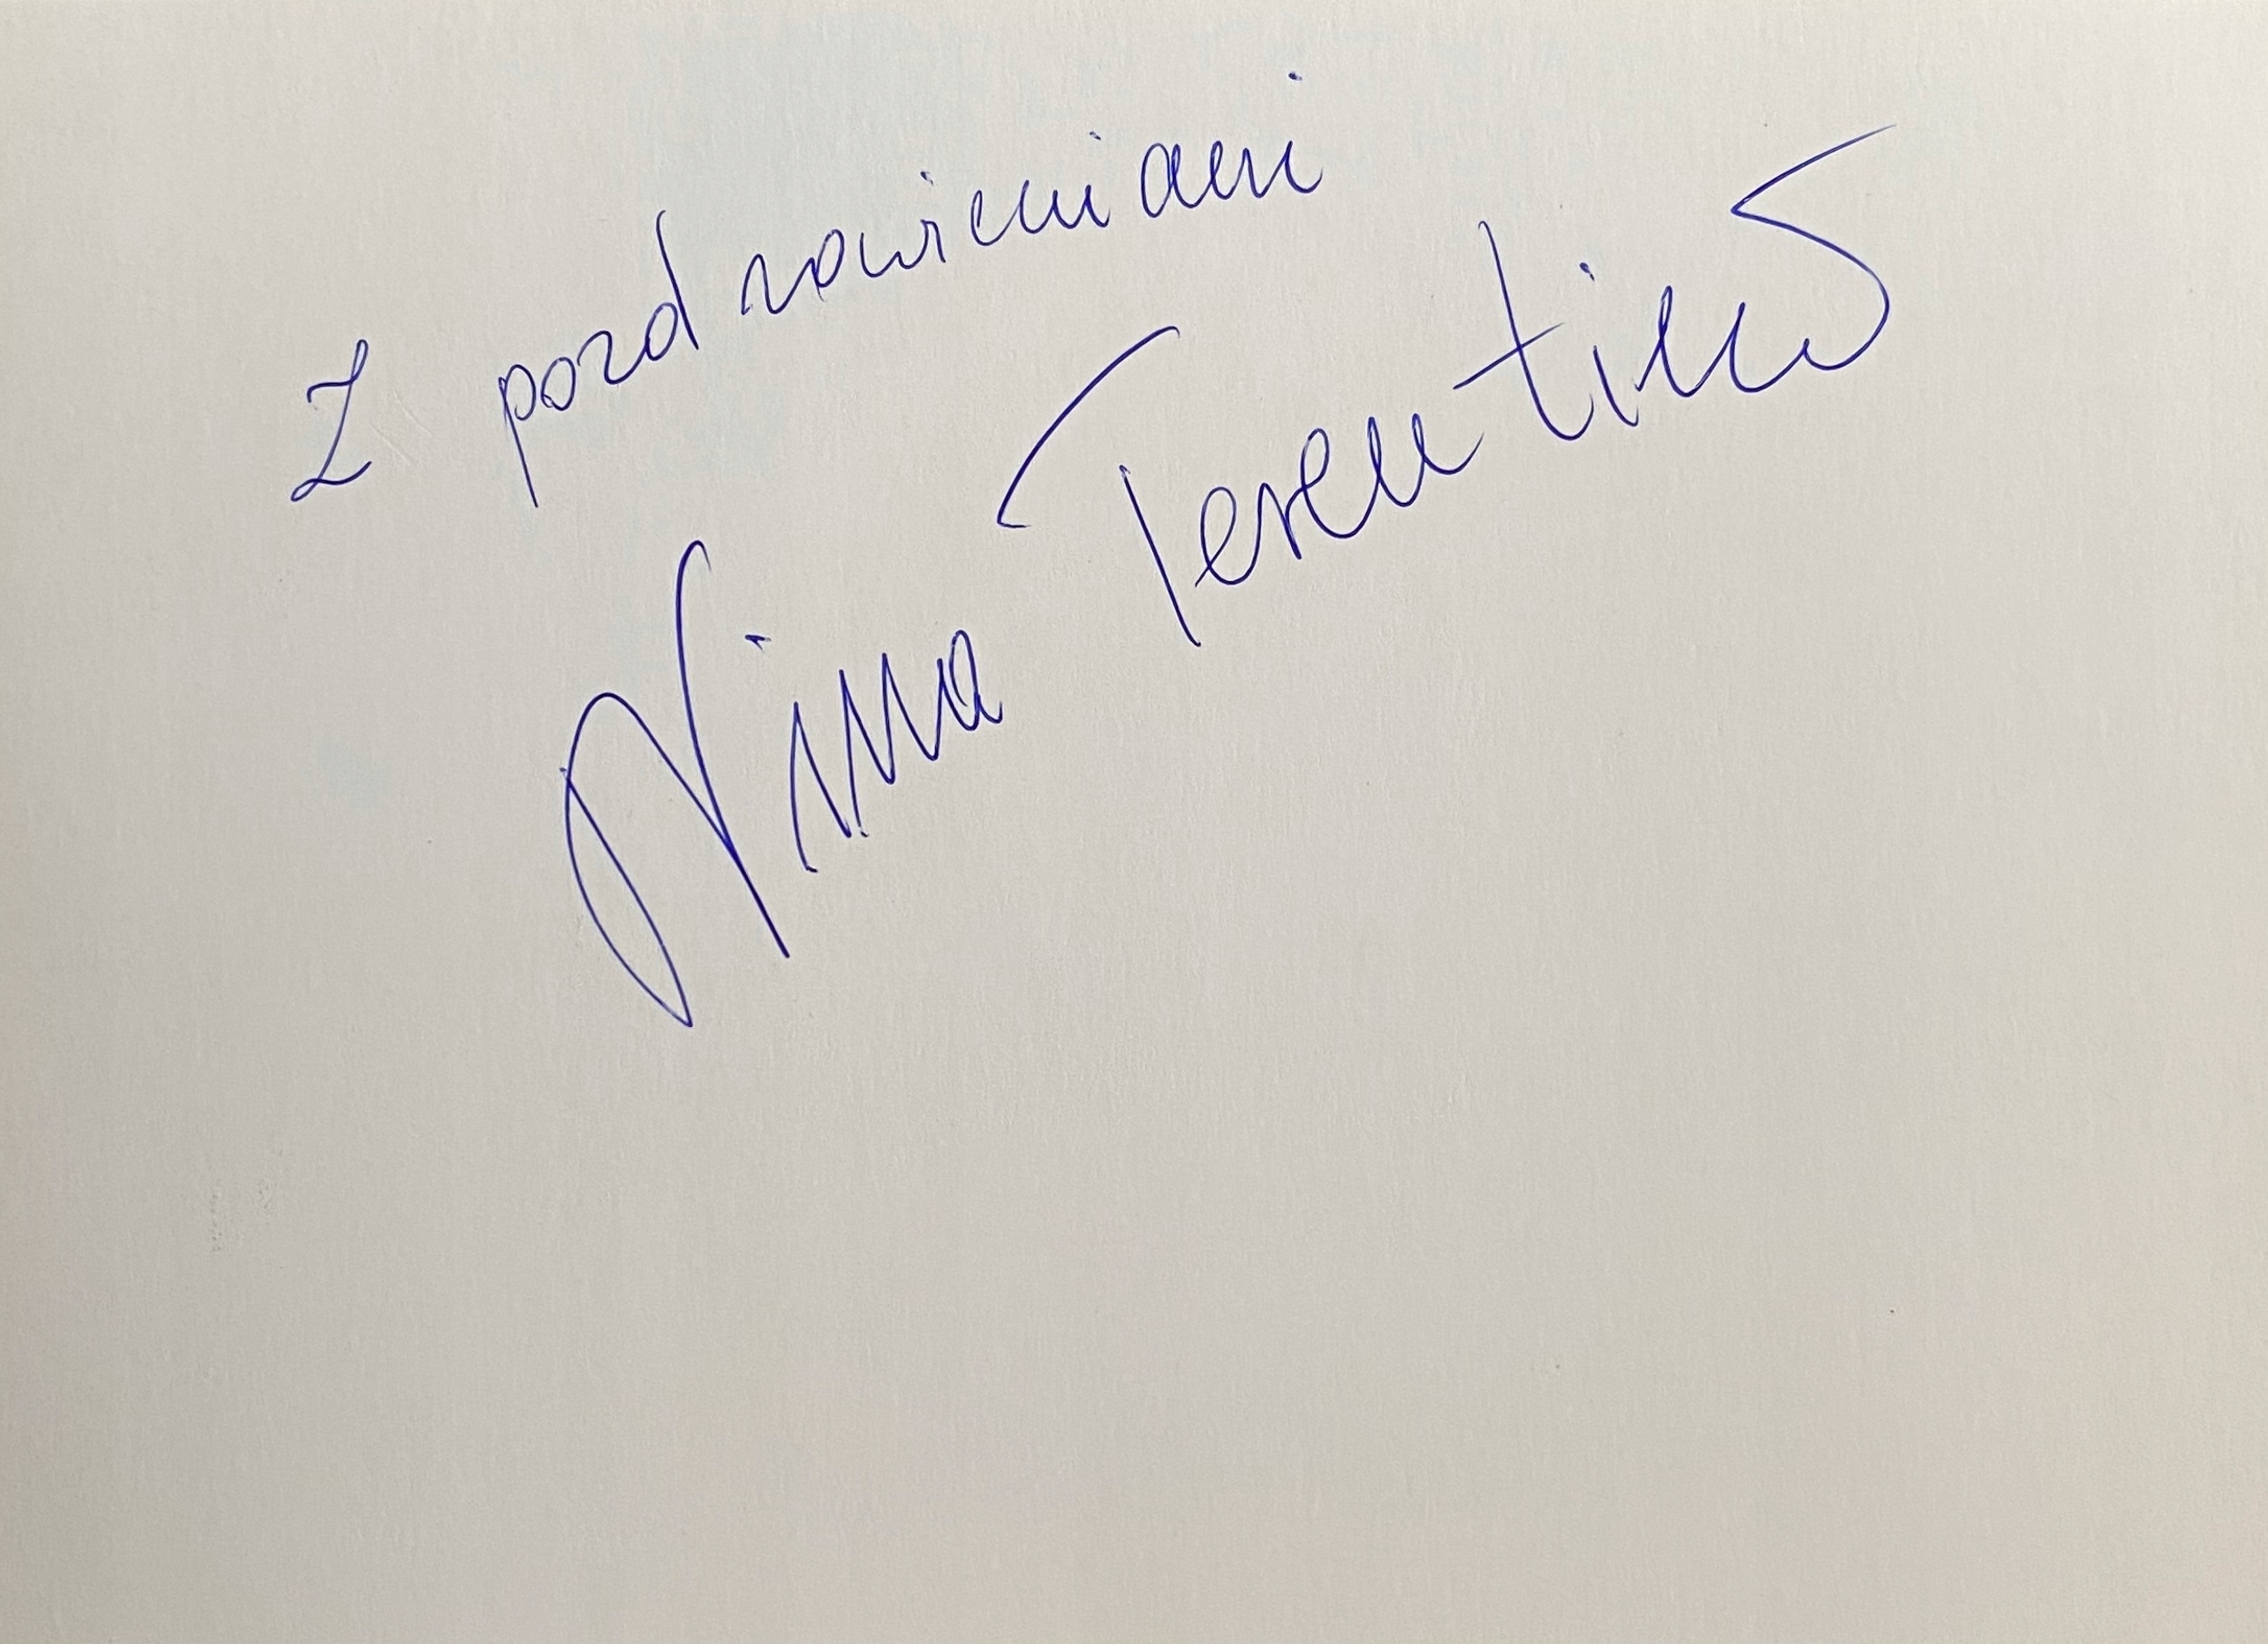 Z pozdrowieniami
Nina Terentiew